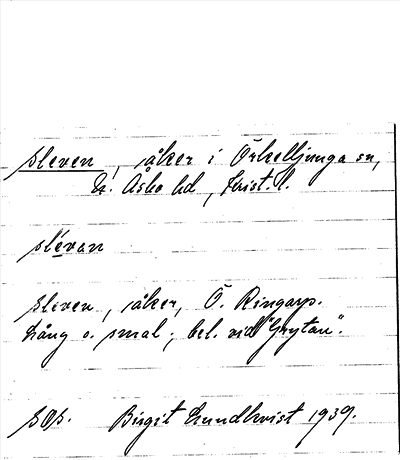 Sleven, åker i Örkelljunga sn,
N. Åsbo hd, Krist. l.
slevan
Sleven, åker, Ö. Ringarp.
Lång o. smal; bel. vid "Grytan".
Birgit Lundkvist 1939.